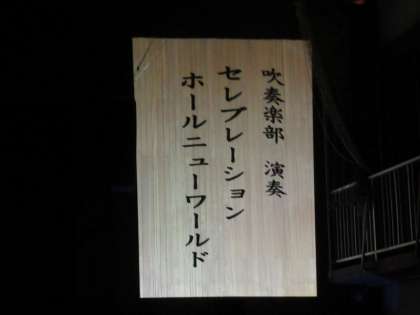 吹奏楽部 演奏
セレブレーション
ホールニューワールド